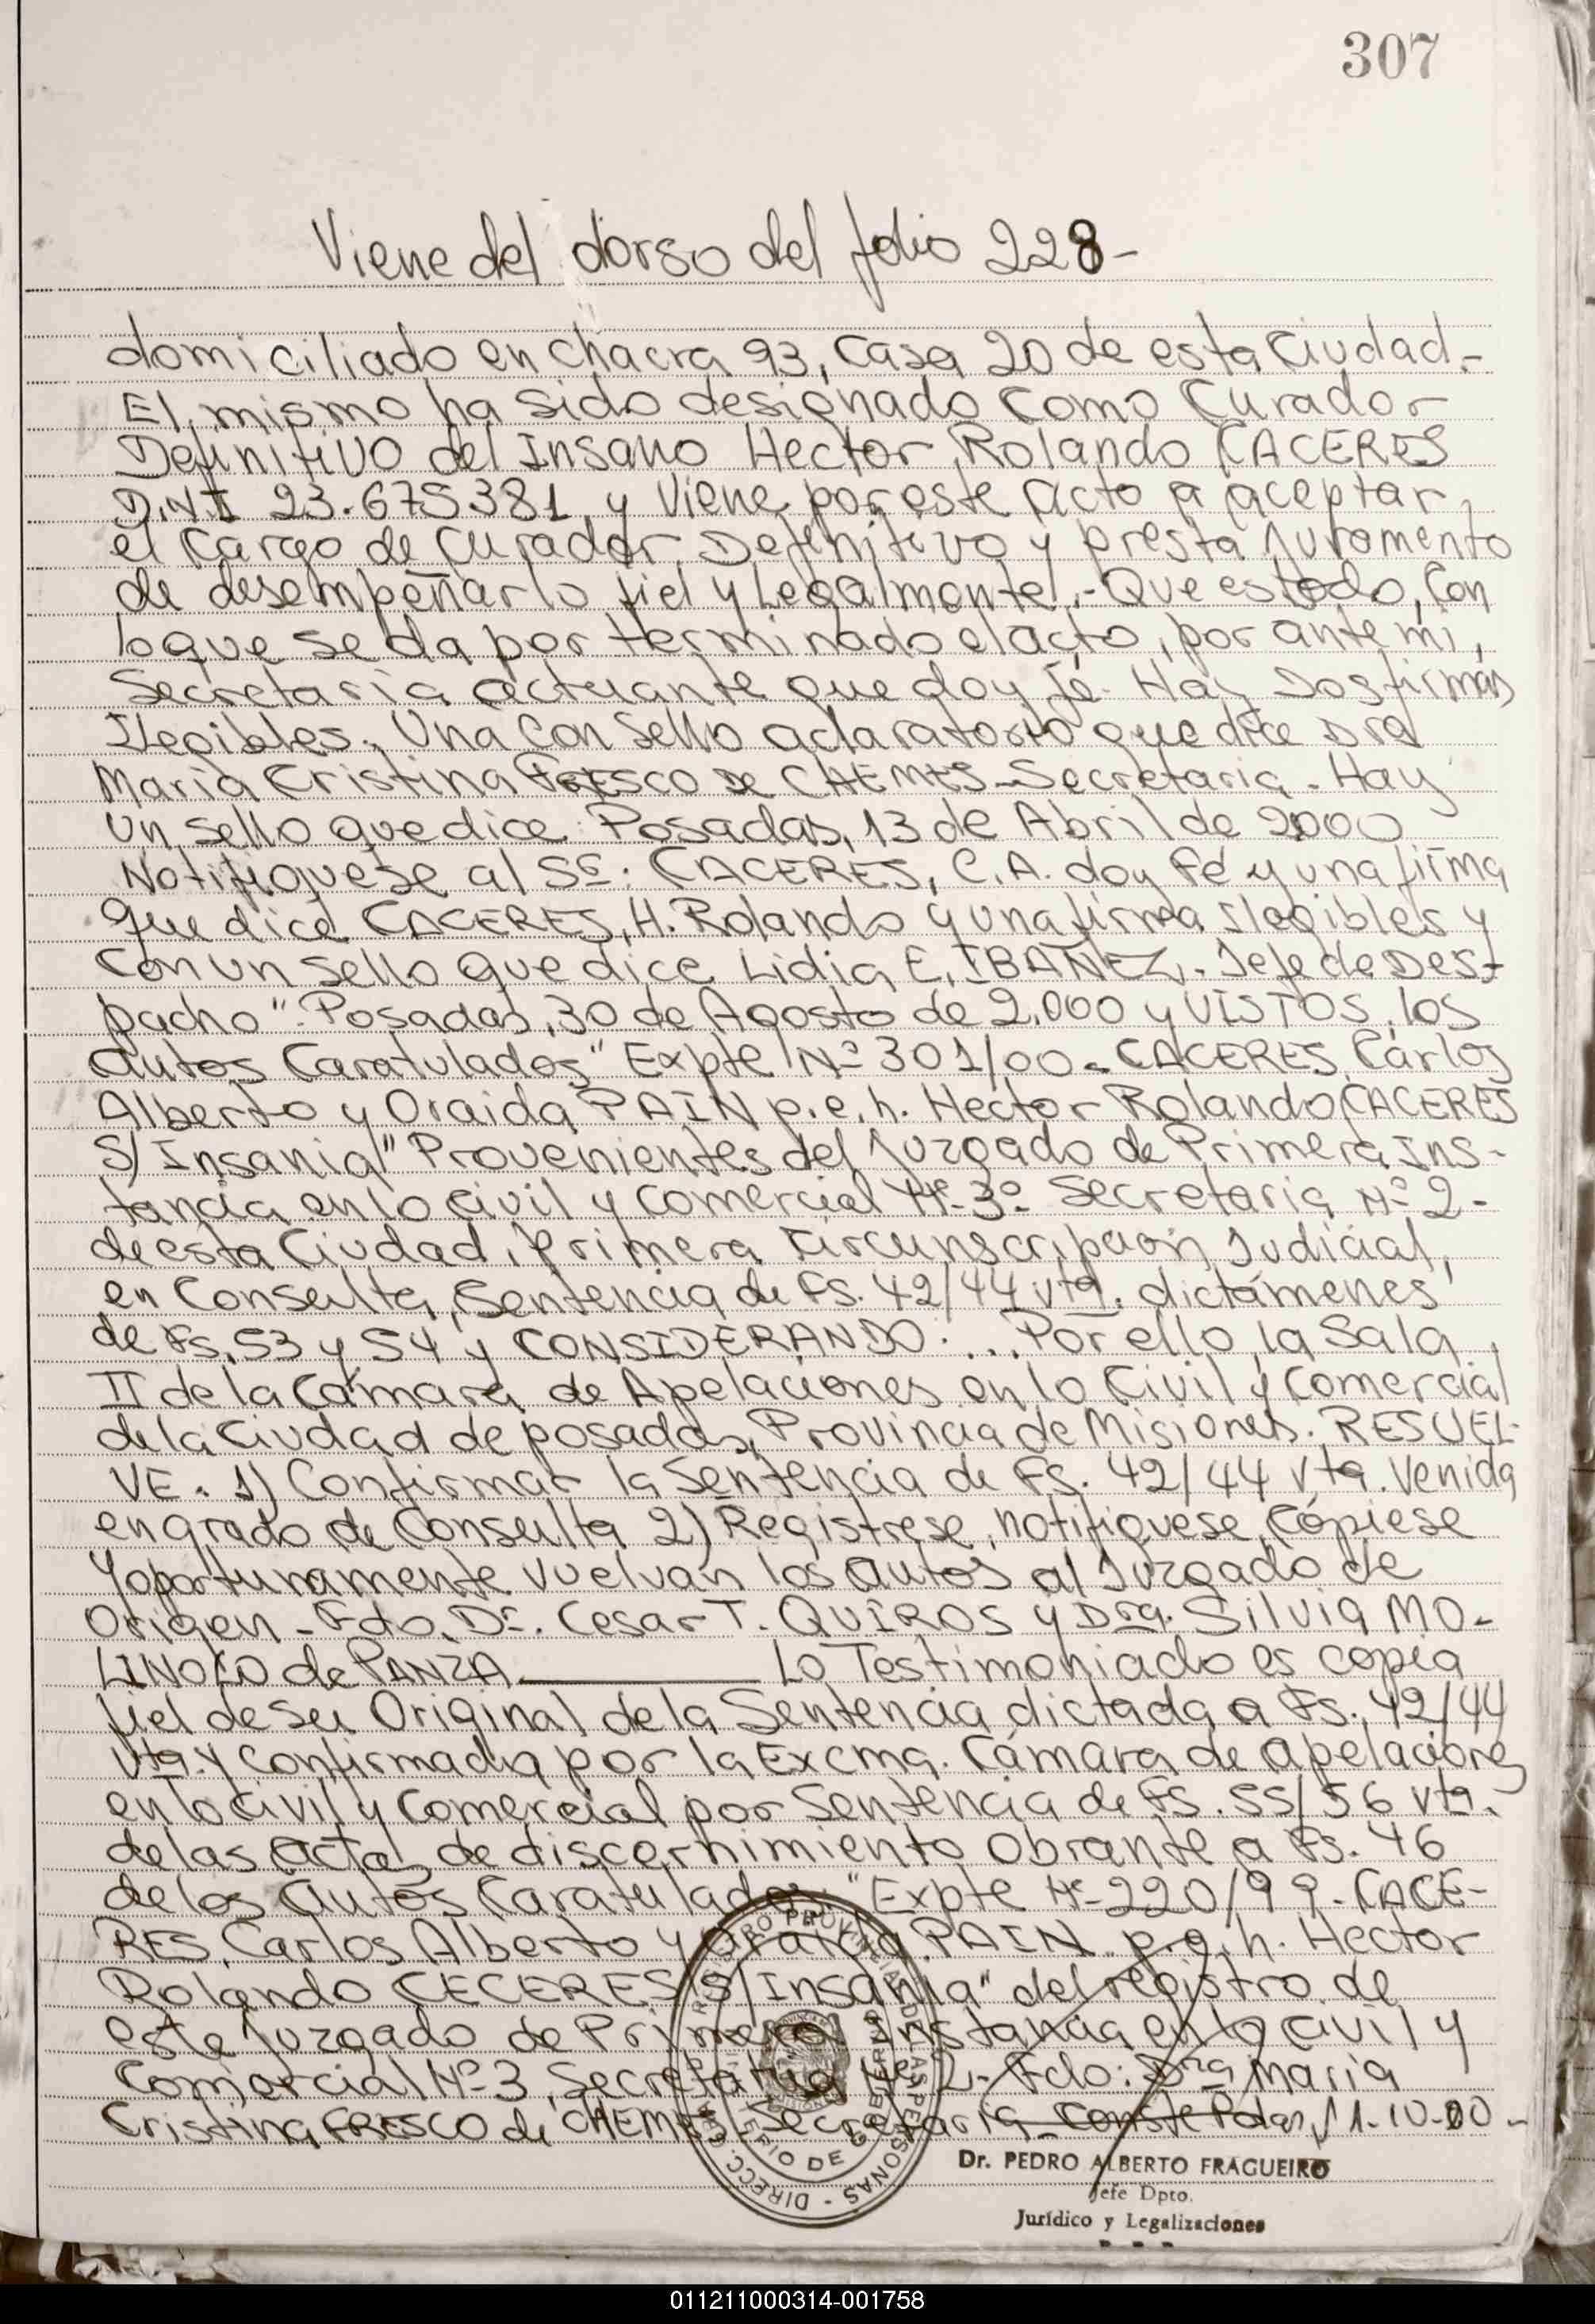 307
Viene del dorso del folio 228-
domiciliado en chacra 93, Casa 20 de esta Ciudad.-
El mismo ha sido designado como Curador
Definitivo del Insano Hector Rolando CACERES
D.N.I 23.675381, y Viene por este acto a aceptar
el Cargo de Curador Definitivo y presta Juromento
de desempeñarlo fiel y Legalmente.- Que es todo, Con
lo que se da por terminado el acto, por ante mi,
Secretaria actuante que doy fé. Hay dos firmas
Ilegibles. Una con Sello aclaratorio que dice Dra
Maria Cristina FRESCO de CHEMES-Secretaria. Hay
Un sello que dice: Posadas, 13 de Abril de 2000
Notifiquese al Sr: CACERES, C.A. doy Fé y una firma
que dice CACERES, H. Rolando y una firma Ilegibles y
Con un sello que dice Lidia E. IBAÑEZ.- Jefe de Des-
pacho". Posadas, 30 de Agosto de 2.000 y VISTOS, los
autos Caratulados "Expte Nº 301/00 - CACERES, Carlos
Alberto y Oraida PAIN p.e.h. Hector Rolando CACERES
S/ Insania" Provenientes del Juzgado de Primera Ins-
tancia en lo civil y comercial Nº 3º Secretaria Nº 2-
de esta Ciudad, Primera Circunscripción Judicial,
en Consulta, Sentencia de Fs. 42/44 vta. dictámenes
de Fs. 53 y 54 y CONSIDERANDO: ... Por ello, la Sala
II de la Cámara de Apelaciones en lo Civil y Comercial
de la Ciudad de posadas, Provincia de Misiones. RESUEL-
VE. 1) Confirmar la Sentencia de Fs. 42/44 vta. Venida
en grado de Consulta 2) Registrese, notifiquese, Cópiese
y oportunamente vuelvan los autos al Juzgado de
Origen - Fdo. Dr. Cesar T. QUIROS y Dra. Silvia MO-
LINOLO de PANZA. Lo Testimoniado es copia
fiel de su Original de la Sentencia dictada a Fs. 42/44
vta. y confirmada por la Excma. Cámara de apelaciones
en lo civil y comercial por Sentencia de Fs. 55/56 vta.
de las actas de discernimiento Obrante a Fs. 46
de los autos Caratulados: "Expte Nº 220/99 - CACE-
RES, Carlos Alberto y Oraida PAIN p.e.h. Hector
Rolando CECERES S/ Insania" del registro de
este Juzgado de Primera Instancia en lo civil y
Comercial Nº 3, Secretaria Nº 2 - Fdo: Dra Maria
Cristina FRESCO de CHEMES - Secretaria - Conste Pdas, 11-10-00 -
Dr. PEDRO ALBERTO FRAGUEIRO
Jefe Dpto.
Jurídico y Legalizaciones
011211000314-001758